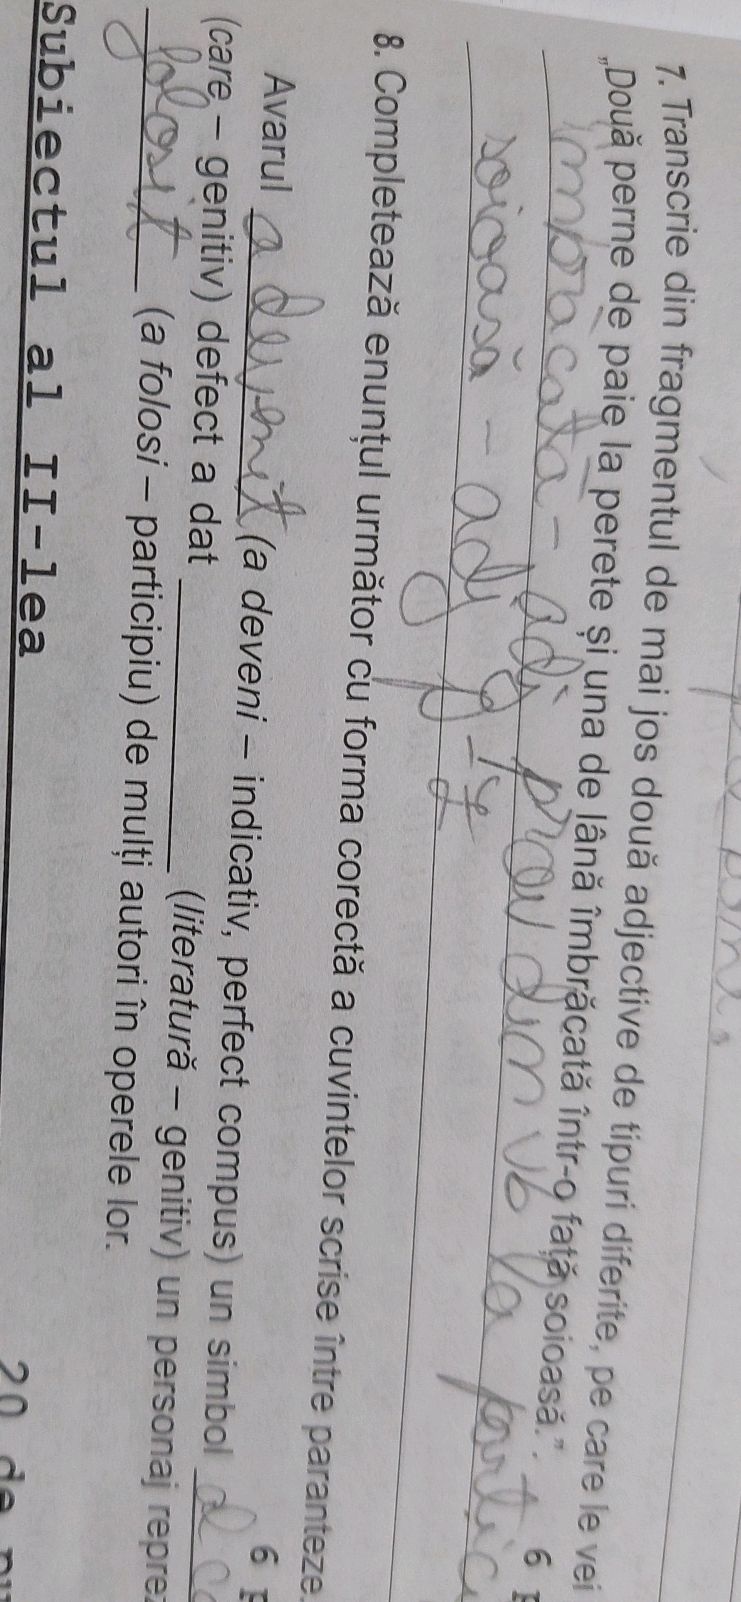 7. Transcrie din fragmentul de mai jos două adjective de tipuri diferite, pe care le vei
„Două perne de paie la perete și una de lână îmbrăcată într-o față soioasă.”. 6
îmbrăcată - adj prov din vb la partic
soioasă - adj
8. Completează enunțul următor cu forma corectă a cuvintelor scrise între paranteze.
6
Avarul a devenit (a deveni – indicativ, perfect compus) un simbol al
(care – genitiv) defect a dat (literatură – genitiv) un personaj
folosit (a folosi – participiu) de mulți autori în operele lor.
Subiectul al II-lea
20 de